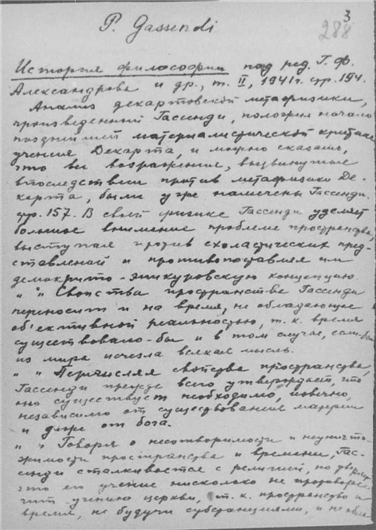 P. Gassendi
3
288
История философии под ред. Г. Ф.
Александрова и др., т. II, 1941 г. стр. 154.
Анализ декартовской метафизики,
произведенный Гассенди, положил начало
позднейшей материалистической критике
учения Декарта и можно сказать,
что все возражения, выдвинутые
впоследствии против метафизики Де-
карта, были уже намечены Гассенди.
стр. 157. В своей физике Гассенди уделяет
большое внимание проблеме пространства,
выступая против схоластических пред-
ставлений и противопоставляя им
демокрито-эпикуровскую концепцию.
" " Свойства пространства Гассенди
переносит и на время, не обладающее
об'ективной реальностью, т. к. время
существовало-бы и в том случае, если бы
из мира исчезла всякая мысль.
" " Перечисляя свойства пространства,
Гассенди прежде всего утверждает, что
оно существует необходимо, извечно,
независимо от существования материи
и даже от бога.
" " Говоря о несотворимости и неуничто-
жимости пространства и времени, Гас-
сенди сталкивается с религией, но уверяет,
что его учение нисколько не противоре-
чит учению церкви, т. к. пространство и
время, не будучи субстанциями, и не